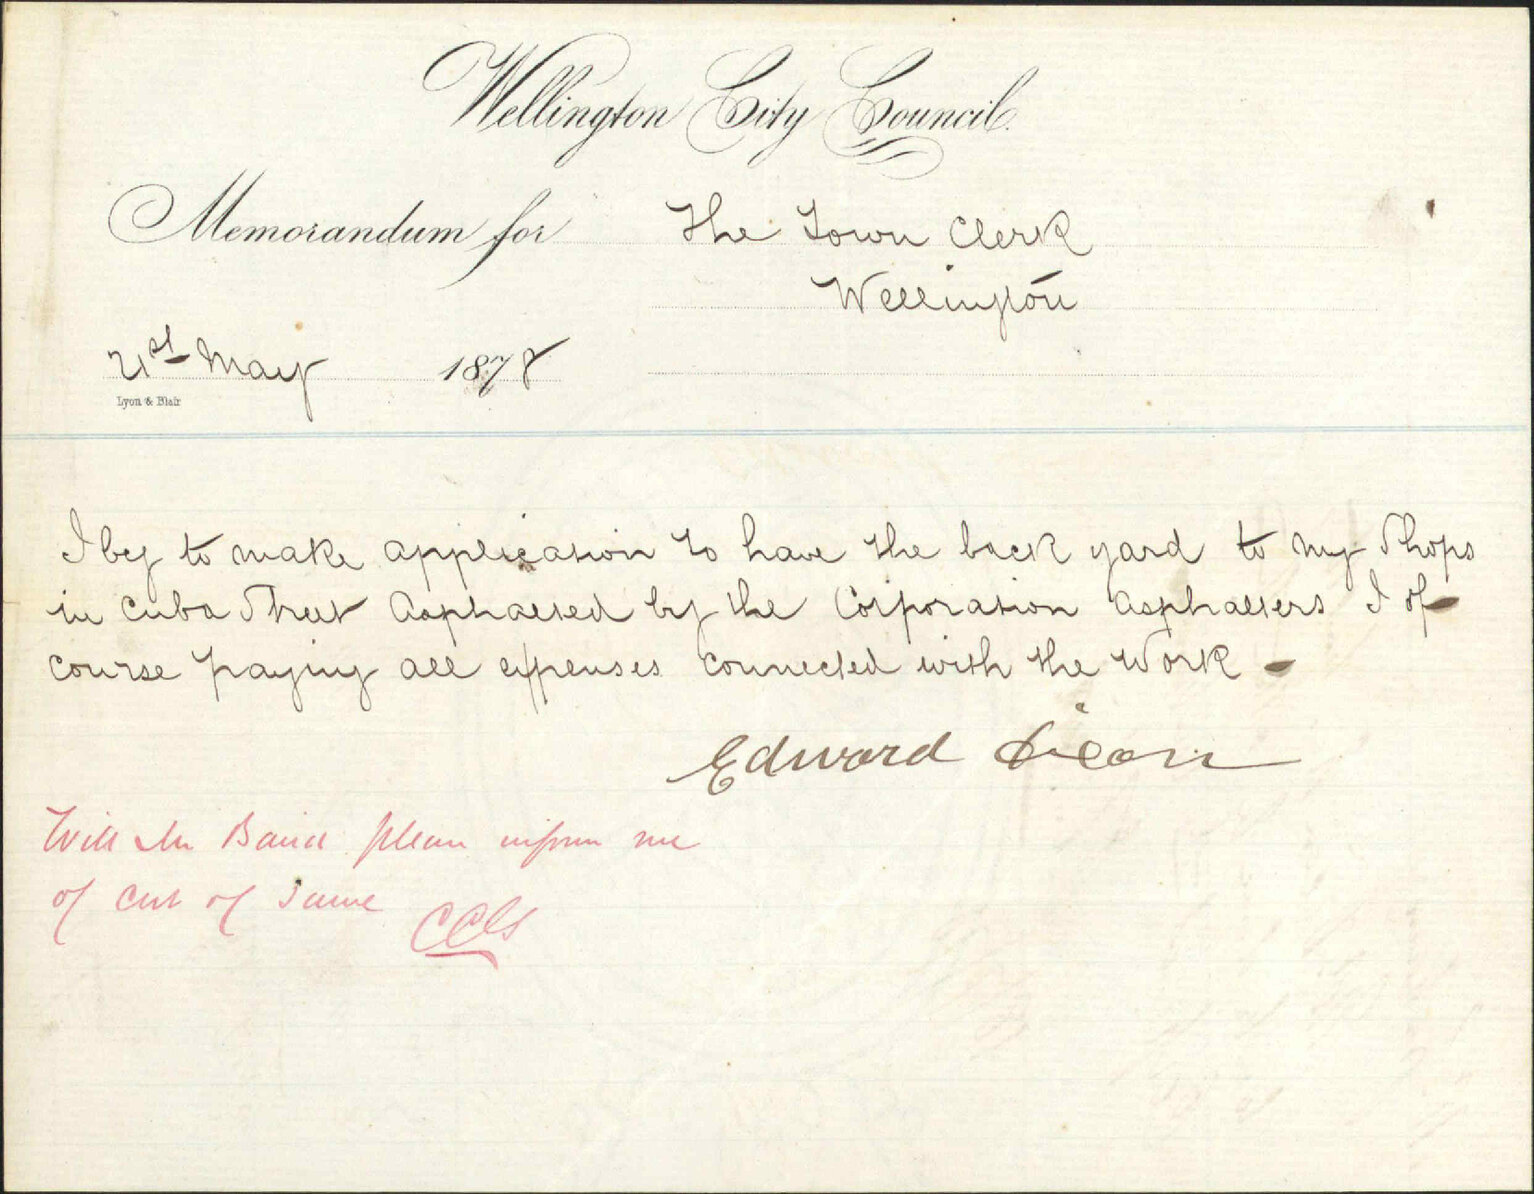 Wellington City Council.
Memorandum for The Town Clerk
Wellington
21st May 1878
Lyon & Blair
I beg to make application to have the back yard to my Shops
in Cuba Street Asphalted by the Corporation Asphalters I of
course paying all expenses connected with the Work
Edward Dixon
Will Mr Baird please inform me
of cost of same